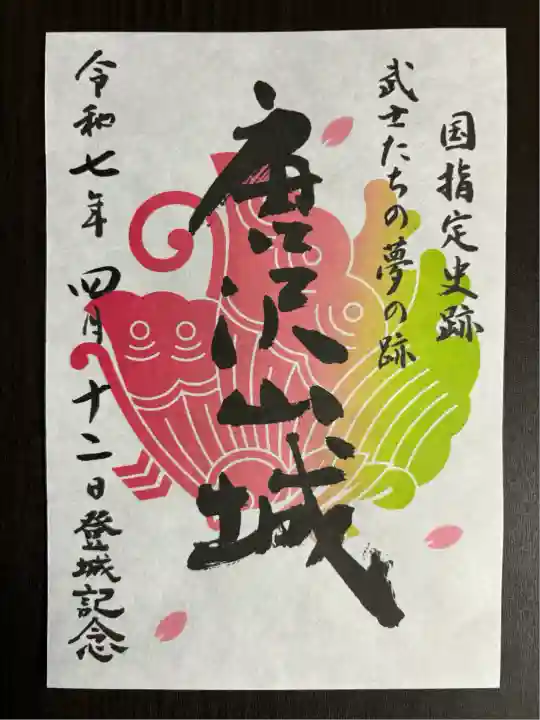 国指定史跡
武士たちの夢の跡
唐沢山城
令和七年四月十二日登城記念